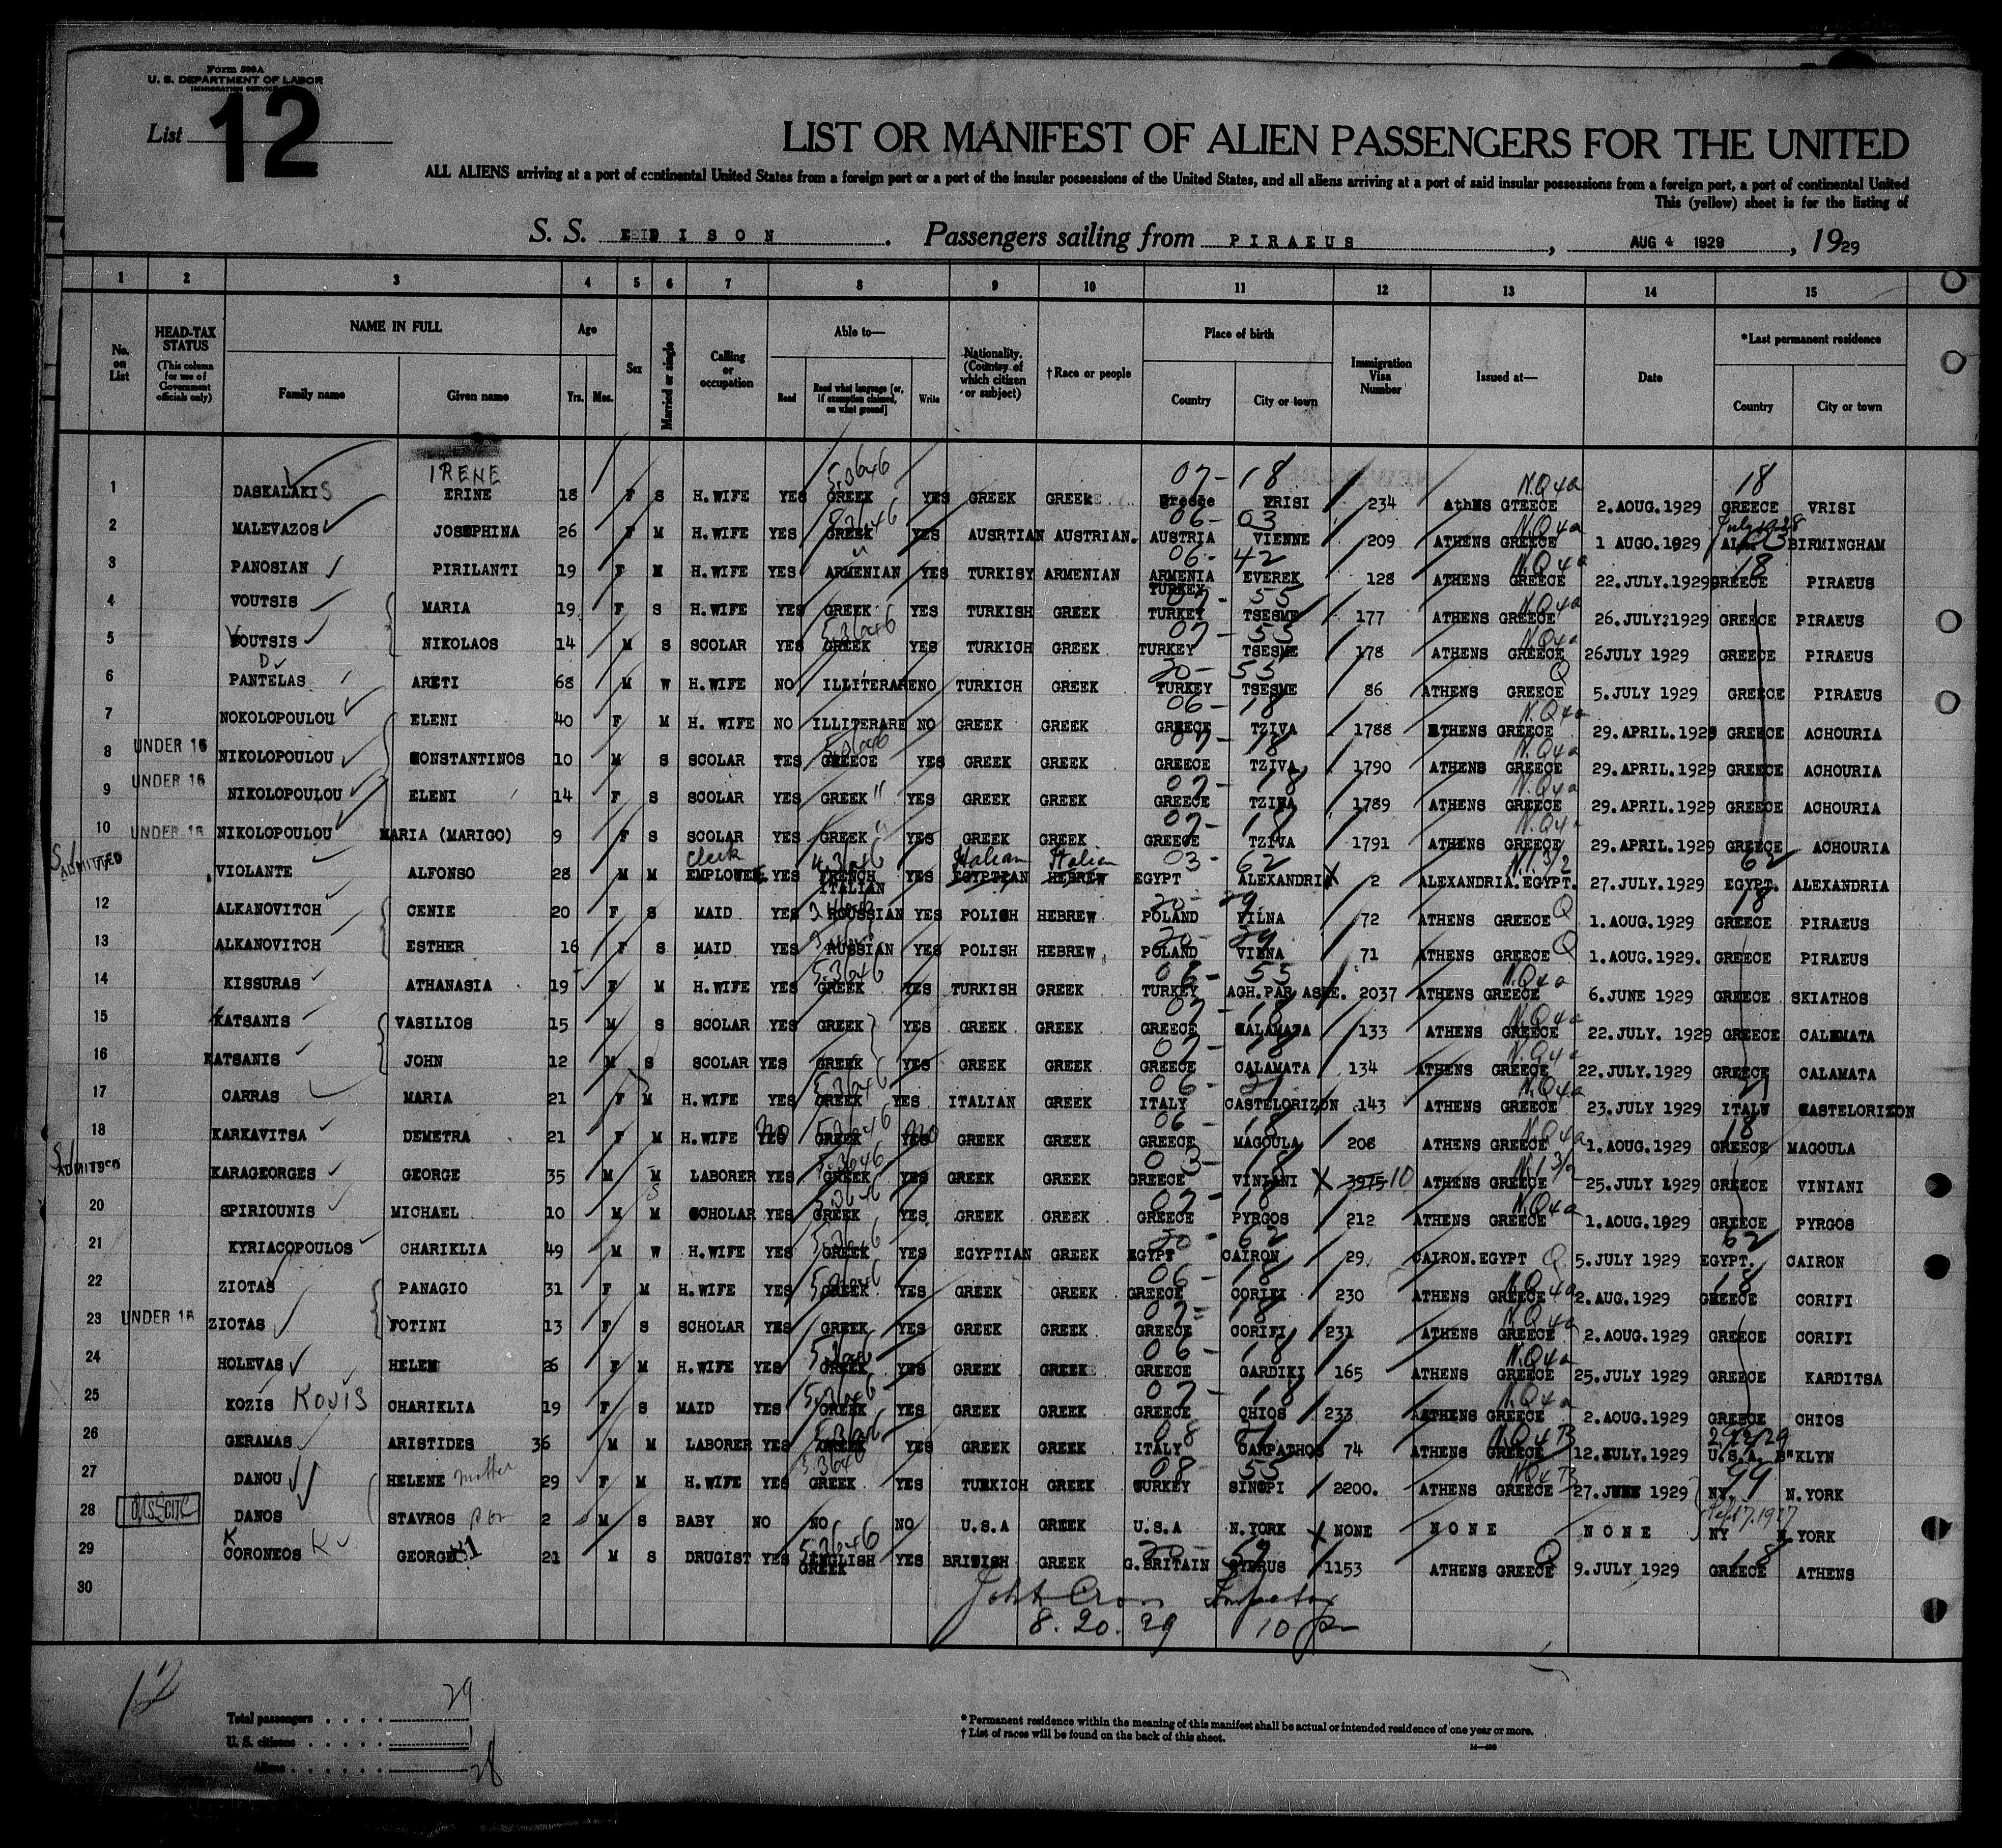 Form 500 A
U. S. DEPARTMENT OF LABOR
IMMIGRATION SERVICE
List 12
LIST OR MANIFEST OF ALIEN PASSENGERS FOR THE UNITED
ALL ALIENS arriving at a port of continental United States from a foreign port or a port of the insular possessions of the United States, and all aliens arriving at a port of said insular possessions from a foreign port, a port of continental United
This (yellow) sheet is for the listing of
S. S. EDISON . Passengers sailing from PIRAEUS , AUG 4 1929 , 1929
1 2 3 4 5 6 7 8 9 10 11 12 13 14 15
No. on List HEAD-TAX STATUS (This column for use of Government officials only) NAME IN FULL Family name Given name Age Yrs. Mos. Sex Married or single Calling or occupation Able to— Read Read what language [or, if exemption claimed, on what ground] Write Nationality. (Country of which citizen or subject) †Race or people Place of birth Country City or town Immigration Visa Number Issued at— Date *Last permanent residence Country City or town
IRENE 5.3646 07- 18 N.Q4a 18
1 DASKALAKIS ERINE 18 F S H.WIFE YES GREEK YES GREEK GREEK Greece VRISI 234 AthNS GTEECE 2.AOUG.1929 GREECE VRISI
06- 03 N.Q4a July 1928
2 MALEVAZOS JOSEPHINA 26 F M H.WIFE YES GREEK YES AUSRTIAN AUSTRIAN. AUSTRIA VIENNE 209 ATHENS GREECE 1 AUGO.1929 BIRMINGHAM
06- 42 N.Q4a 18
3 PANOSIAN PIRILANTI 19 F M H.WIFE YES ARMENIAN YES TURKISY ARMENIAN ARMENIA TURKEY EVEREK 128 ATHENS GREECE 22.JULY.1929 GREECE PIRAEUS
07- 55 N.Q4a
4 VOUTSIS MARIA 19 F S H.WIFE YES GREEK YES TURKISH GREEK TURKEY TSESME 177 ATHENS GREECE 26.JULY?1929 GREECE PIRAEUS
5.3646 07- 55 N.Q4a
5 VOUTSIS NIKOLAOS 14 M S SCOLAR YES GREEK YES TURKICH GREEK TURKEY TSESME 178 ATHENS GREECE 26JULY 1929 GREECE PIRAEUS
D 20- 55 Q
6 PANTELAS ARETI 68 M W H.WIFE NO ILLITERARE NO TURKICH GREEK TURKEY TSESME 86 ATHENS GREECE 5.JULY 1929 GREECE PIRAEUS
06- 18 N.Q4a
7 NOKOLOPOULOU ELENI 40 F M H. WIFE NO ILLITERARE NO GREEK GREEK GREECE TZIVA 1788 ATHENS GREECE 29.APRIL.1929 GREECE ACHOURIA
5.3646 07- 18 N.Q4a
8 UNDER 16 NIKOLOPOULOU CONSTANTINOS 10 M S SCOLAR YES GREECE YES GREEK GREEK GREECE TZIVA 1790 ATHENS GREECE 29.APRIL.1929 GREECE ACHOURIA
07- 18 N.Q4a
9 UNDER 16 NIKOLOPOULOU ELENI 14 F S SCOLAR YES GREEK " YES GREEK GREEK GREECE TZIVA 1789 ATHENS GREECE 29.APRIL.1929 GREECE ACHOURIA
07- 18 N.Q4a
10 UNDER 16 NIKOLOPOULOU MARIA (MARIGO) 9 F S SCOLAR YES GREEK " YES GREEK GREEK GREECE TZIVA 1791 ATHENS GREECE 29.APRIL.1929 GREECE ACHOURIA
Clerk Italian Italian 03- 62 N.1 3/2 62
11 ADMITTED VIOLANTE ALFONSO 28 M M EMPLOYEE YES FRENCH ITALIAN YES EGYPTIAN HEBREW EGYPT ALEXANDRIA 2 ALEXANDRIA.EGYPT. 27.JULY.1929 EGYPT. ALEXANDRIA
20- 29 Q 18
12 ALKANOVITCH CENIE 20 F S MAID YES ROUSSIAN YES POLISH HEBREW POLAND VILNA 72 ATHENS GREECE 1.AOUG.1929 GREECE PIRAEUS
20- 29 Q
13 ALKANOVITCH ESTHER 16 F S MAID YES RUSSIAN YES POLISH HEBREW POLAND VIENA 71 ATHENS GREECE 1.AOUG.1929. GREECE PIRAEUS
5.3646 06- 55 N.Q4a
14 KISSURAS ATHANASIA 19 F M H.WIFE YES GREEK YES TURKISH GREEK TURKEY AGH.PAR ASKE. 2037 ATHENS GREECE 6.JUNE 1929 GREECE SKIATHOS
07- 18 N.Q4a
15 KATSANIS VASILIOS 15 M S SCOLAR YES GREEK YES GREEK GREEK GREECE CALAMATA 133 ATHENS GREECE 22.JULY. 1929 GREECE CALEMATA
07- 18 N.Q4a
16 KATSANIS JOHN 12 M S SCOLAR YES GREEK YES GREEK GREEK GREECE CALAMATA 134 ATHENS GREECE 22.JULY.1929 GREECE CALAMATA
5.3646 06- 21 N.Q4a 21
17 CARRAS MARIA 21 F M H.WIFE YES GREEK YES ITALIAN GREEK ITALY CASTELORIZON 143 ATHENS GREECE 23.JULY 1929 ITALY CASTELORIZON
no 5.3646 no 06- 18 N.Q4a 18
18 KARKAVITSA DEMETRA 21 F M H.WIFE YES GREEK YES GREEK GREEK GREECE MAGOULA 208 ATHENS GREECE 1.AOUG.1929 GREECE MAGOULA
5.3646 03- 18 N.1 3/2
19 ADMITTED KARAGEORGES GEORGE 35 M M LABORER YES GREEK YES GREEK GREEK GREECE VINIANI 3975 10 ATHENS GREECE 25.JULY 1929 GREECE VINIANI
S 5.3646 07- 18 N.Q4a
20 SPIRIOUNIS MICHAEL 10 M M SCHOLAR YES GREEK YES GREEK GREEK GREECE PYRGOS 212 ATHENS GREECE 1.AOUG.1929 GREECE PYRGOS
5.3646 20- 62 62
21 KYRIACOPOULOS CHARIKLIA 49 M W H.WIFE YES GREEK YES EGYPTIAN GREEK EGYPT CAIRON 29. CAIRON.EGYPT Q 5.JULY 1929 EGYPT. CAIRON
5.3646 06- 18 N.Q4a 18
22 ZIOTAS PANAGIO 31 F M H.WIFE YES GREEK YES GREEK GREEK GREECE CORIFI 230 ATHENS GREECE 2.AUG.1929 GREECE CORIFI
07- 18 N.Q4a
23 UNDER 16 ZIOTAS FOTINI 13 F S SCHOLAR YES GREEK YES GREEK GREEK GREECE CORIFI 231 ATHENS GREECE 2.AOUG.1929 GREECE CORIFI
5.3646 06- 18 N.Q4a
24 HOLEVAS HELEN 26 F M H.WIFE YES GREEK YES GREEK GREEK GREECE GARDIKI 165 ATHENS GREECE 25.JULY 1929 GREECE KARDITSA
5.3646 07- 18 N.Q4a
25 KOZIS KOJIS CHARIKLIA 19 F S MAID YES GREEK YES GREEK GREEK GREECE CHIOS 233 ATHENS GREECE 2.AOUG.1929 GREECE CHIOS
5.3646 08 21 N.Q4B 2/12/29
26 GERAMAS ARISTIDES 36 M M LABORER YES GREEK YES GREEK GREEK ITALY CARPATHOS 74 ATHENS GREECE 12.JULY.1929 U.S.A. B"KLYN
5.3646 08 55 NQ4B 99
27 DANOU HELENE mother 29 F M H.WIFE YES GREEK YES TURKICH GREEK TURKEY SINOPI 2200. ATHENS GREECE 27.JUNE 1929 NY. N.YORK
Sept 17.1927
28 DANOS STAVROS son 2 M S BABY NO NO NO U.S.A GREEK U.S.A N.YORK NONE NONE NONE NY N.YORK
K 5.3646 20- 59 Q 18
29 CORONEOS K GEORGE 31 21 M S DRUGIST YES ENGLISH GREEK YES BRITISH GREEK G.BRITAIN CYPRUS 1153 ATHENS GREECE 9.JULY 1929 GREECE ATHENS
30
Inspector
8.20.29 10 pm
12
Total passengers . . . . 29
U. S. citizens . . . . . 1
Aliens . . . . . . 28
*Permanent residence within the meaning of this manifest shall be actual or intended residence of one year or more.
†List of races will be found on the back of this sheet.